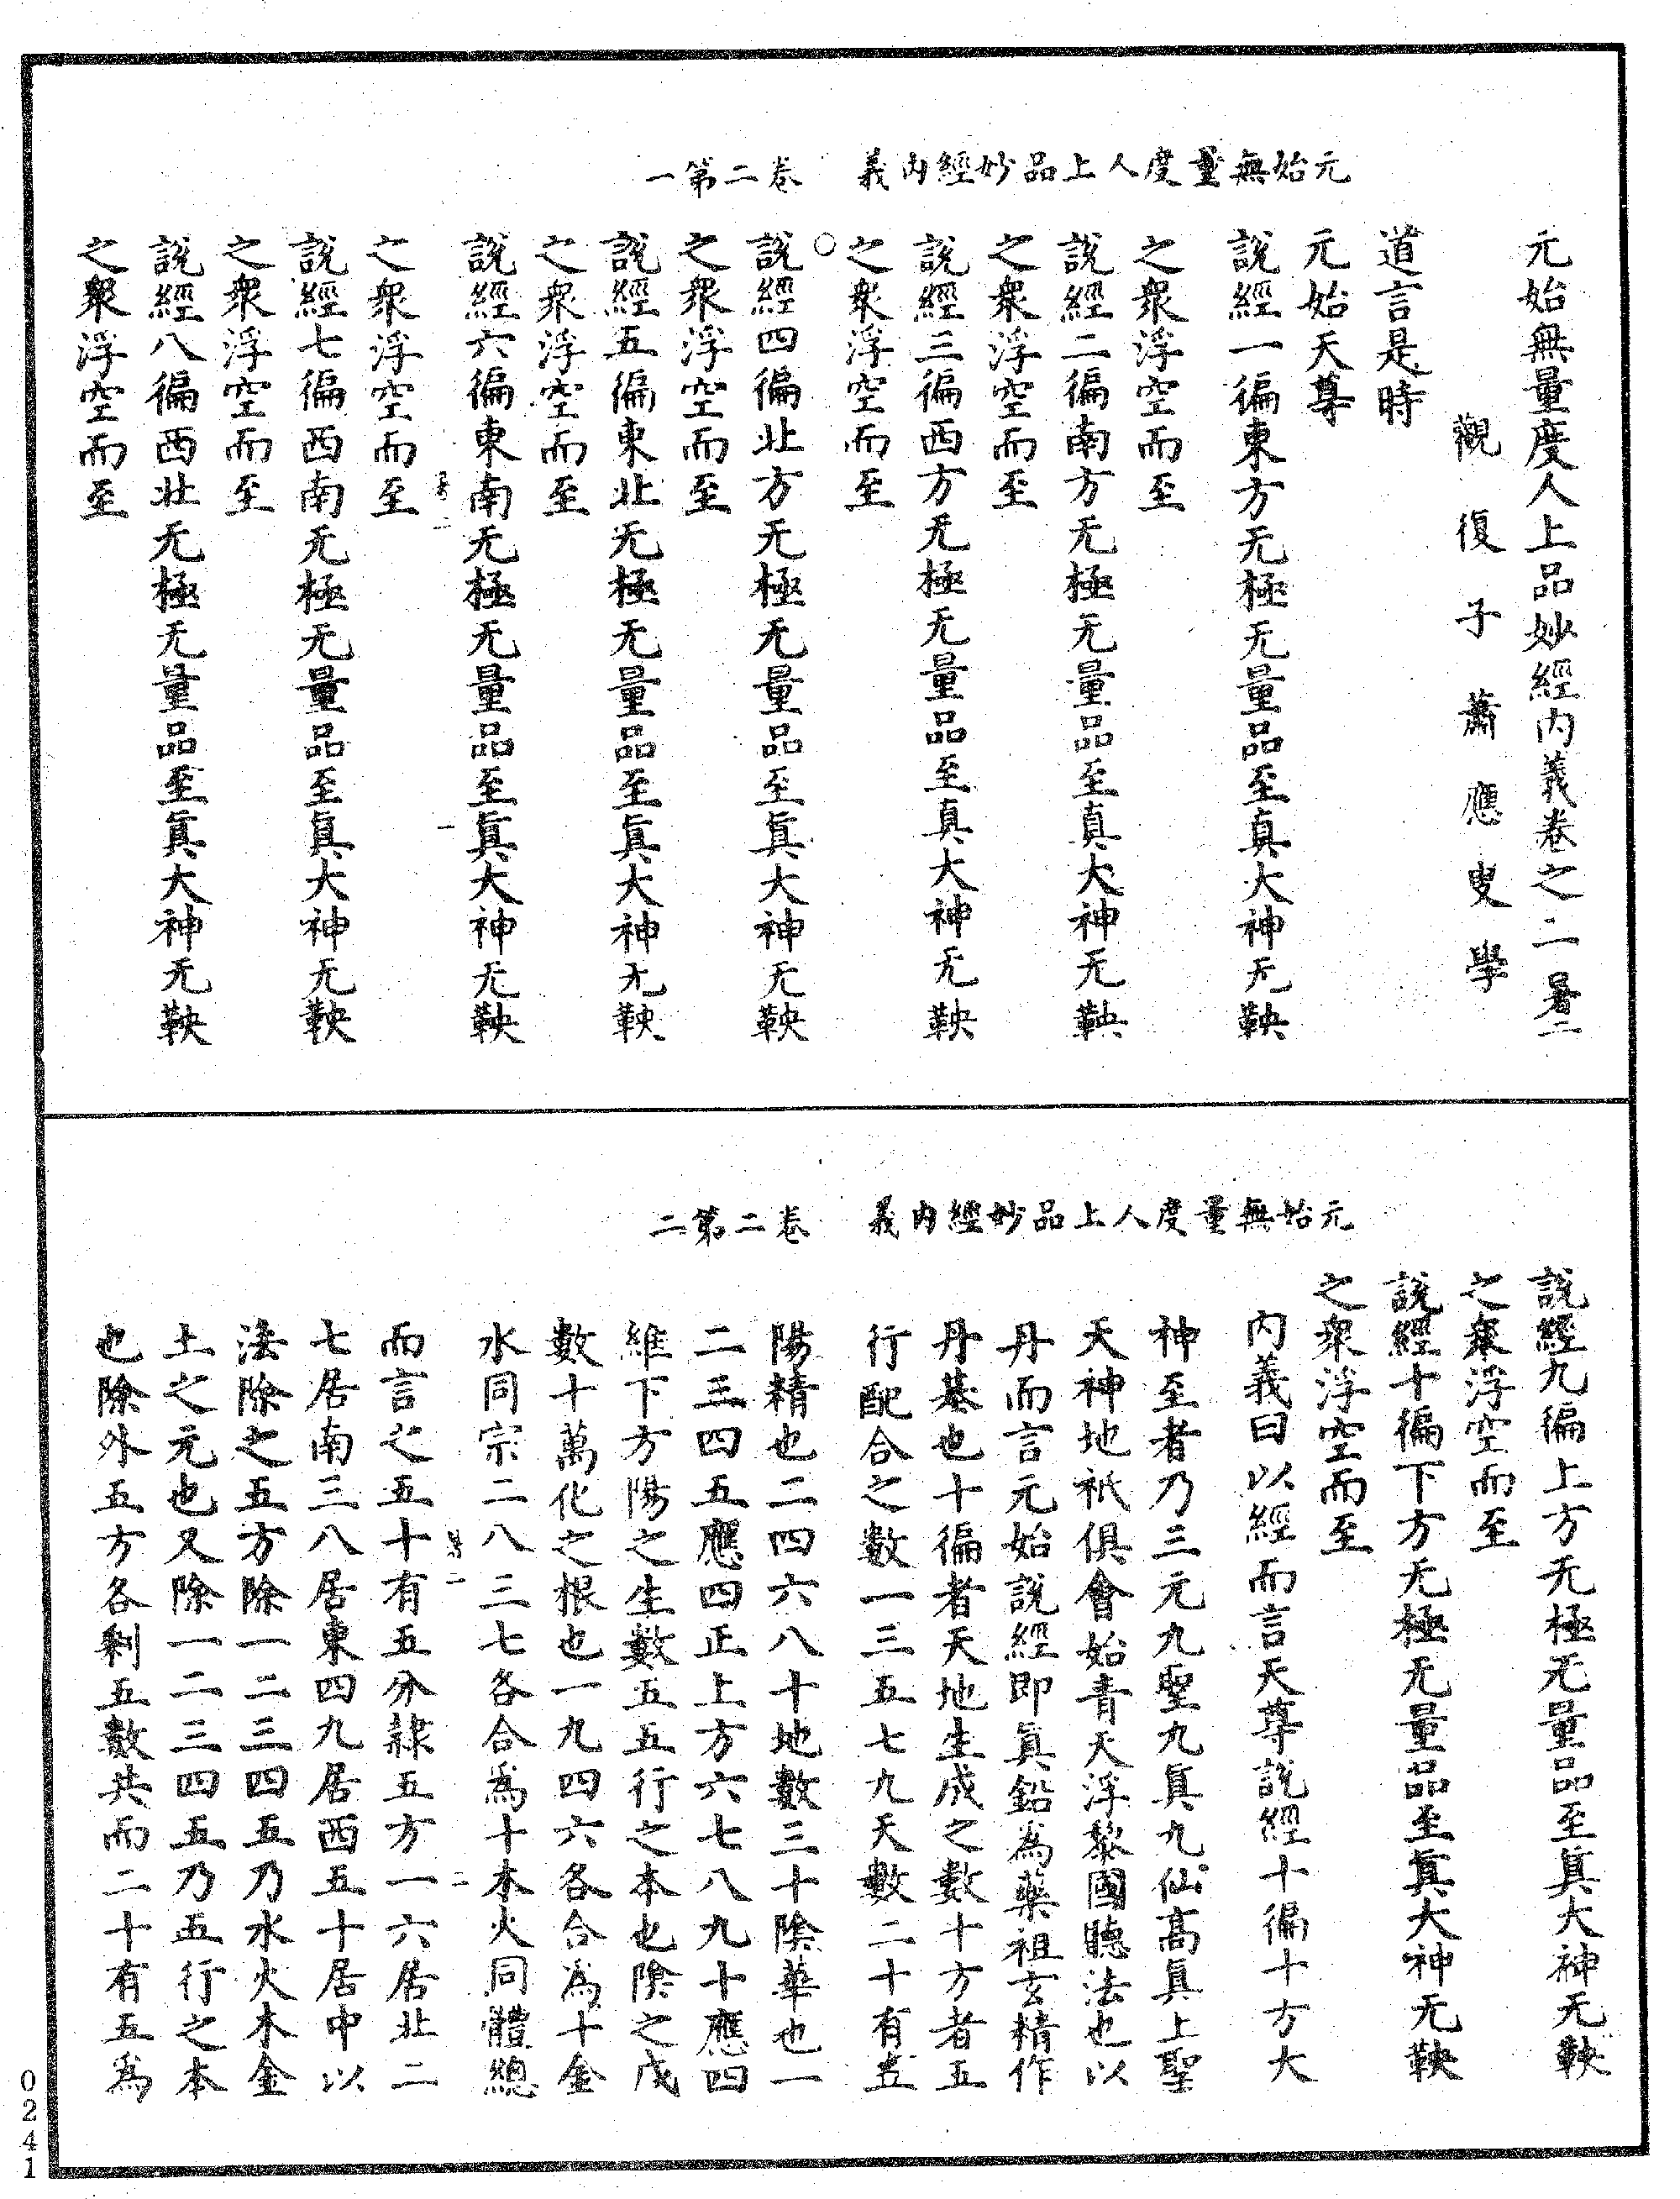 元始無量度人上品妙經內義　卷二第一
元始無量度人上品妙經內義卷之二　暑二
觀復子蕭應叟學
道言是時
元始天尊
說經一徧東方无極无量品至真大神无鞅
之衆浮空而至
說經二徧南方无極无量品至真大神无鞅
之衆浮空而至
說經三徧西方无極无量品至真大神无鞅
之衆浮空而至
○
說經四徧北方无極无量品至眞大神无鞅
之衆浮空而至
說經五徧東北无極无量品至眞大神无鞅
之衆浮空而至
說經六徧東南无極无量品至眞大神无鞅
之衆浮空而至
說經七徧西南无極无量品至眞大神无鞅
之衆浮空而至
說經八徧西北无極无量品至眞大神无鞅
之衆浮空而至
元始無量度人上品妙經內義　卷二第二
說經九徧上方无極无量品至眞大神无鞅
之衆浮空而至
說經十徧下方无極无量品至眞大神无鞅
之衆浮空而至
內義曰以經而言天尊說經十徧十方大
神至者乃三元九聖九眞九仙高眞上聖
天神地祇俱會始青天浮黎國聽法也以
丹而言元始說經即眞鉛為藥祖玄精作
丹基也十徧者天地生成之數十方者五
行配合之數一三五七九天數二十有五
陽精也二四六八十地數三十陰華也一
二三四五應四正上方六七八九十應四
維下方陽之生數五五行之本也陰之成
數十萬化之根也一九四六各合為十金
水同宗二八三七各合為十木火同體總
而言之五十有五分隸五方一六居北二
七居南三八居東四九居西五十居中以
法除之五方除一二三四五乃水火木金
土之元也又除一二三四五乃五行之本
也除外五方各剩五數共而二十有五為
0241